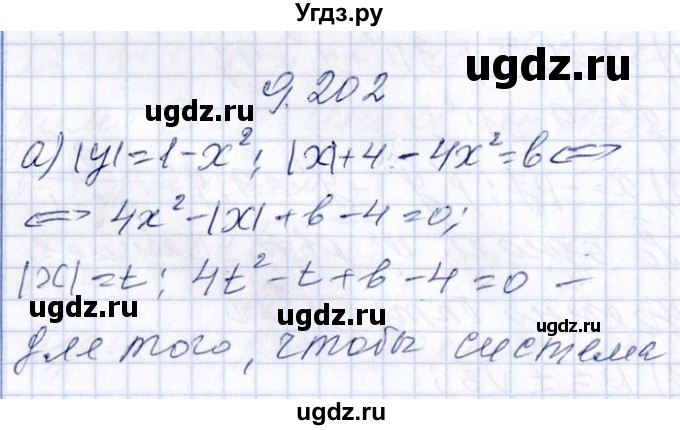 Угдз.ру
ugdz.ru
9.202
ugdz.ru
а) |y|=1-x²; |x|+4-4x²=b⇔
⇔ 4x²-|x|+b-4=0;
ugdz.ru
ugdz.ru
|x|=t; 4t²-t+b-4=0 –
ugdz.ru
ugdz.ru
для того, чтобы система
ugdz.ru